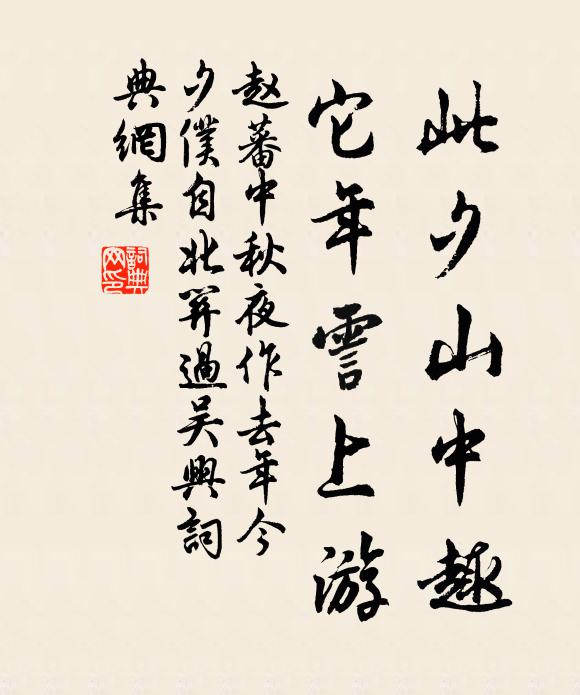 此夕山中趣
它年霅上游
赵蕃中秋夜作去年今
夕僕自北關過吳興詞
典網集
詞典网印